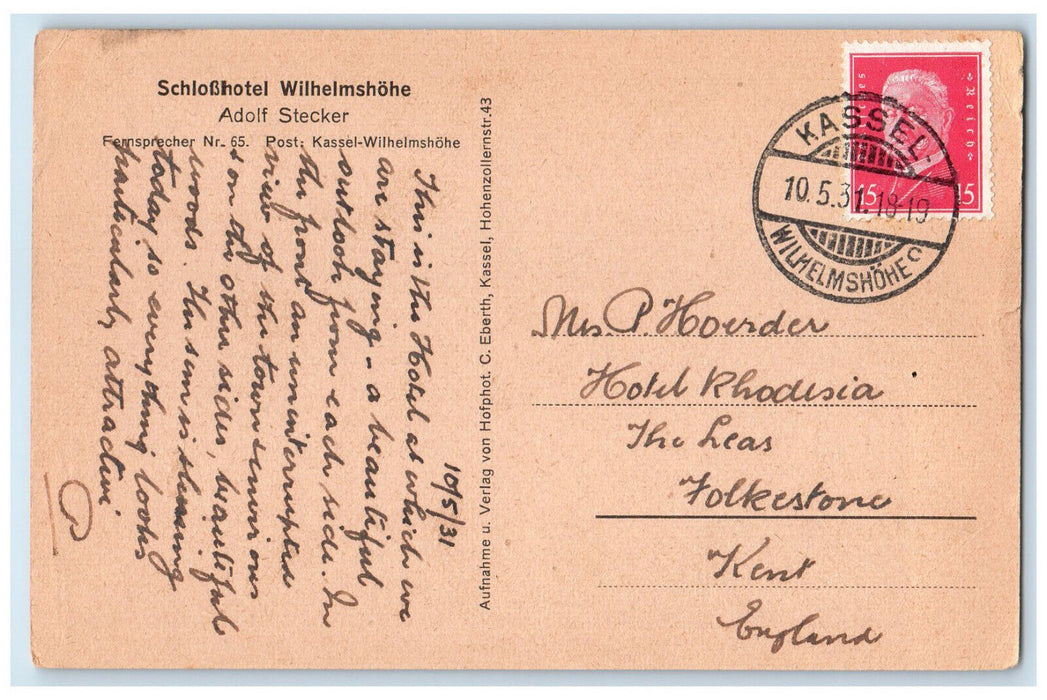 Schloßhotel Wilhelmshöhe
Adolf Stecker
Fernsprecher Nr. 65. Post: Kassel-Wilhelmshöhe
10/5/31
This is the Hotel at which we
are staying - a beautiful
outlook from each side. In
the front an uninterrupted
view of the town & environs
& on the other sides, beautiful
woods. The sun is shining
today so everything looks
particularly attractive
Aufnahme u. Verlag von Hofphot. C. Eberth, Kassel, Hohenzollernstr. 43
Reich
15 15
KASSEL-
10.5.31. 18-19
WILHELMSHÖHE
Mrs P. Hoerder
Hotel Rhodesia
The Leas
Folkestone
Kent
England